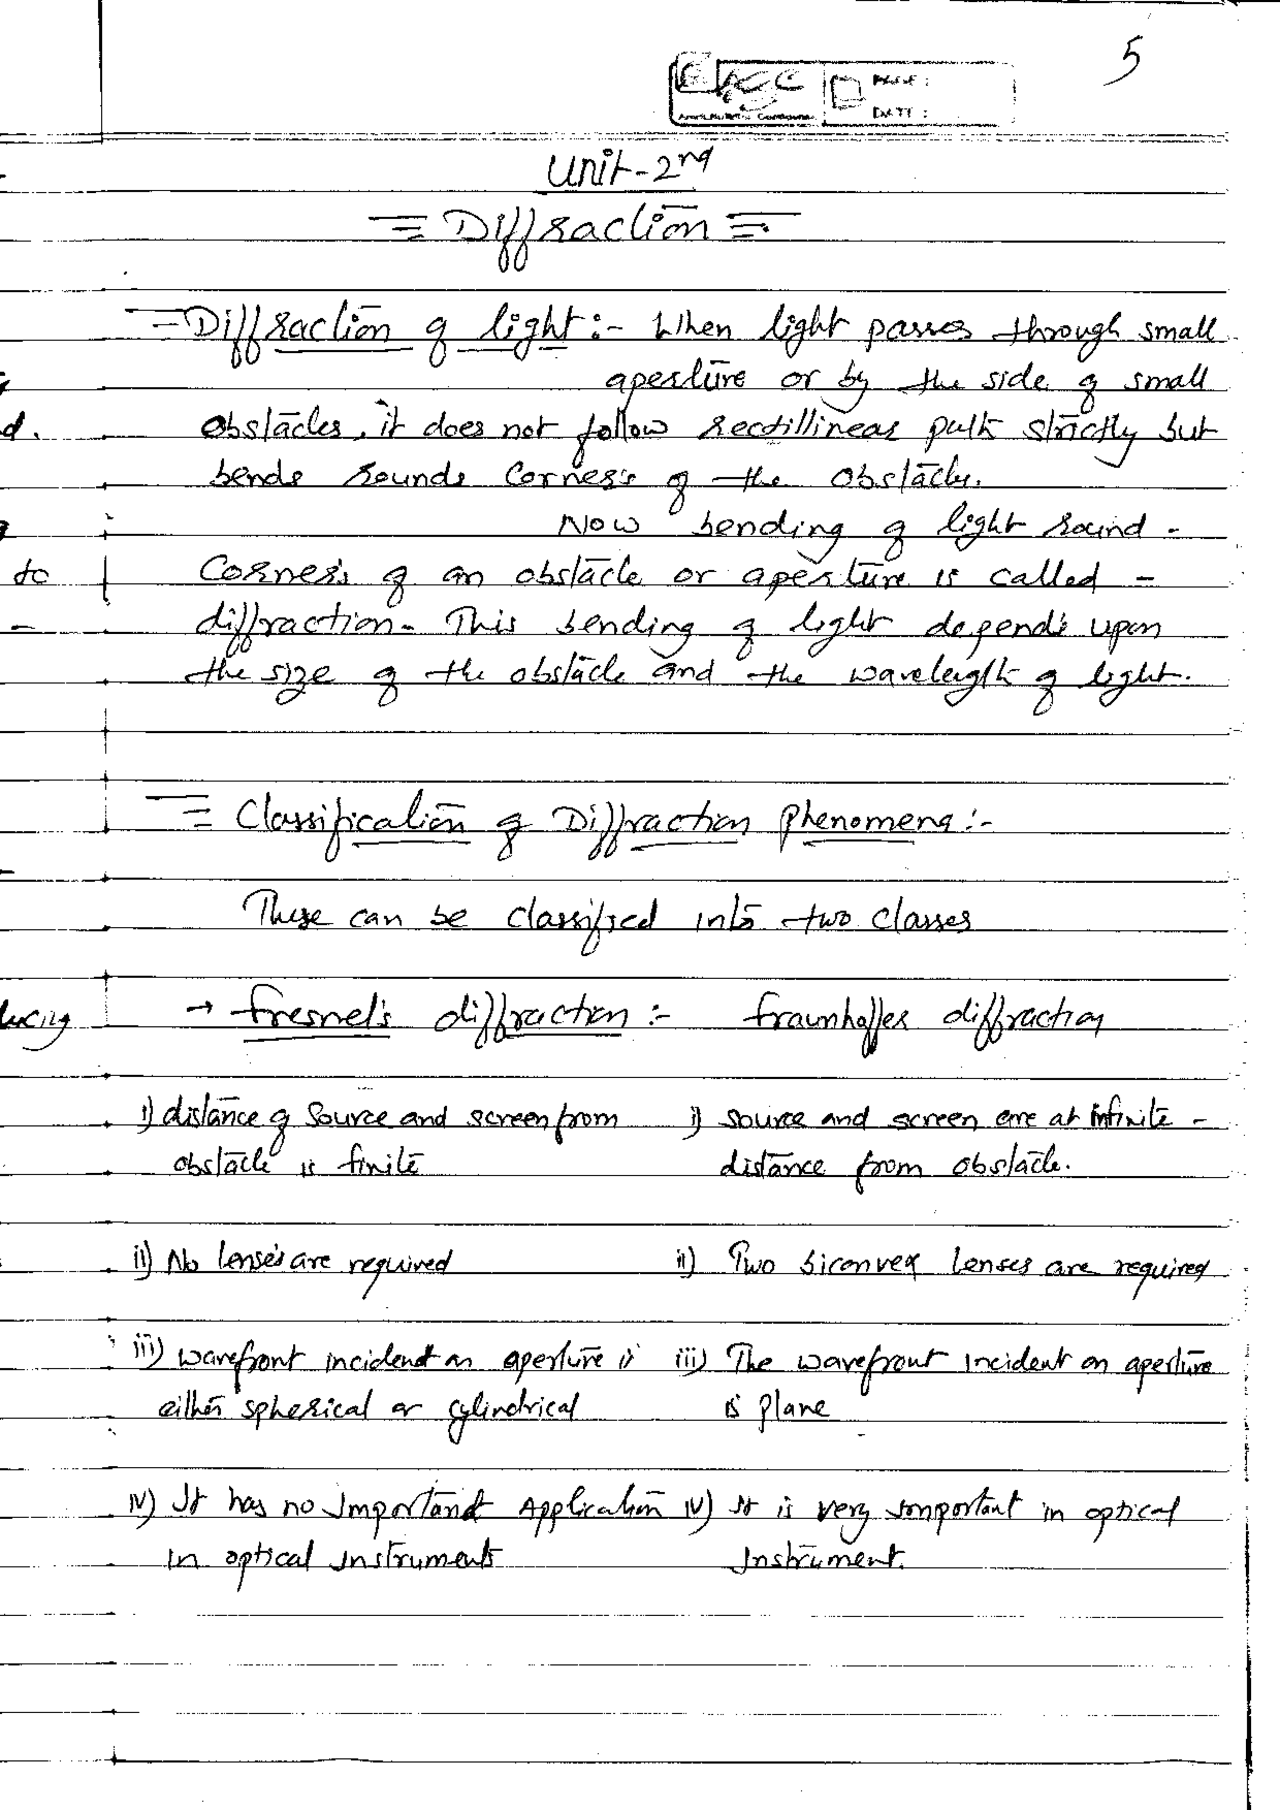 5
PAGE :
DATE :
Unit-2nd
= Diffraction =
= Diffraction of light :- When light passes through small
aperture or by the side of small
d.
obstacles, it does not follow rectillinear path strictly but
bends rounds Corners of the obstacles.
Now bending of light round -
to
Corners of an obstacle or aperture is called -
diffraction. This bending of light depends upon
the size of the obstacle and the wavelength of light.
= Classification of Diffraction Phenomena :-
These can be classified into two classes
ducing
→ fresnel's diffraction :- fraunhoffer diffraction
i) distance of Source and screen from i) source and screen are at infinite -
obstacle is finite distance from obstacle.
ii) No lenses are required ii) Two biconvex lenses are required
iii) wavefront incident on aperture is iii) The wavefront incident on aperture
either spherical or cylindrical is plane
iv) It has no Important Application iv) It is very important in optical
in optical instruments Instrument.